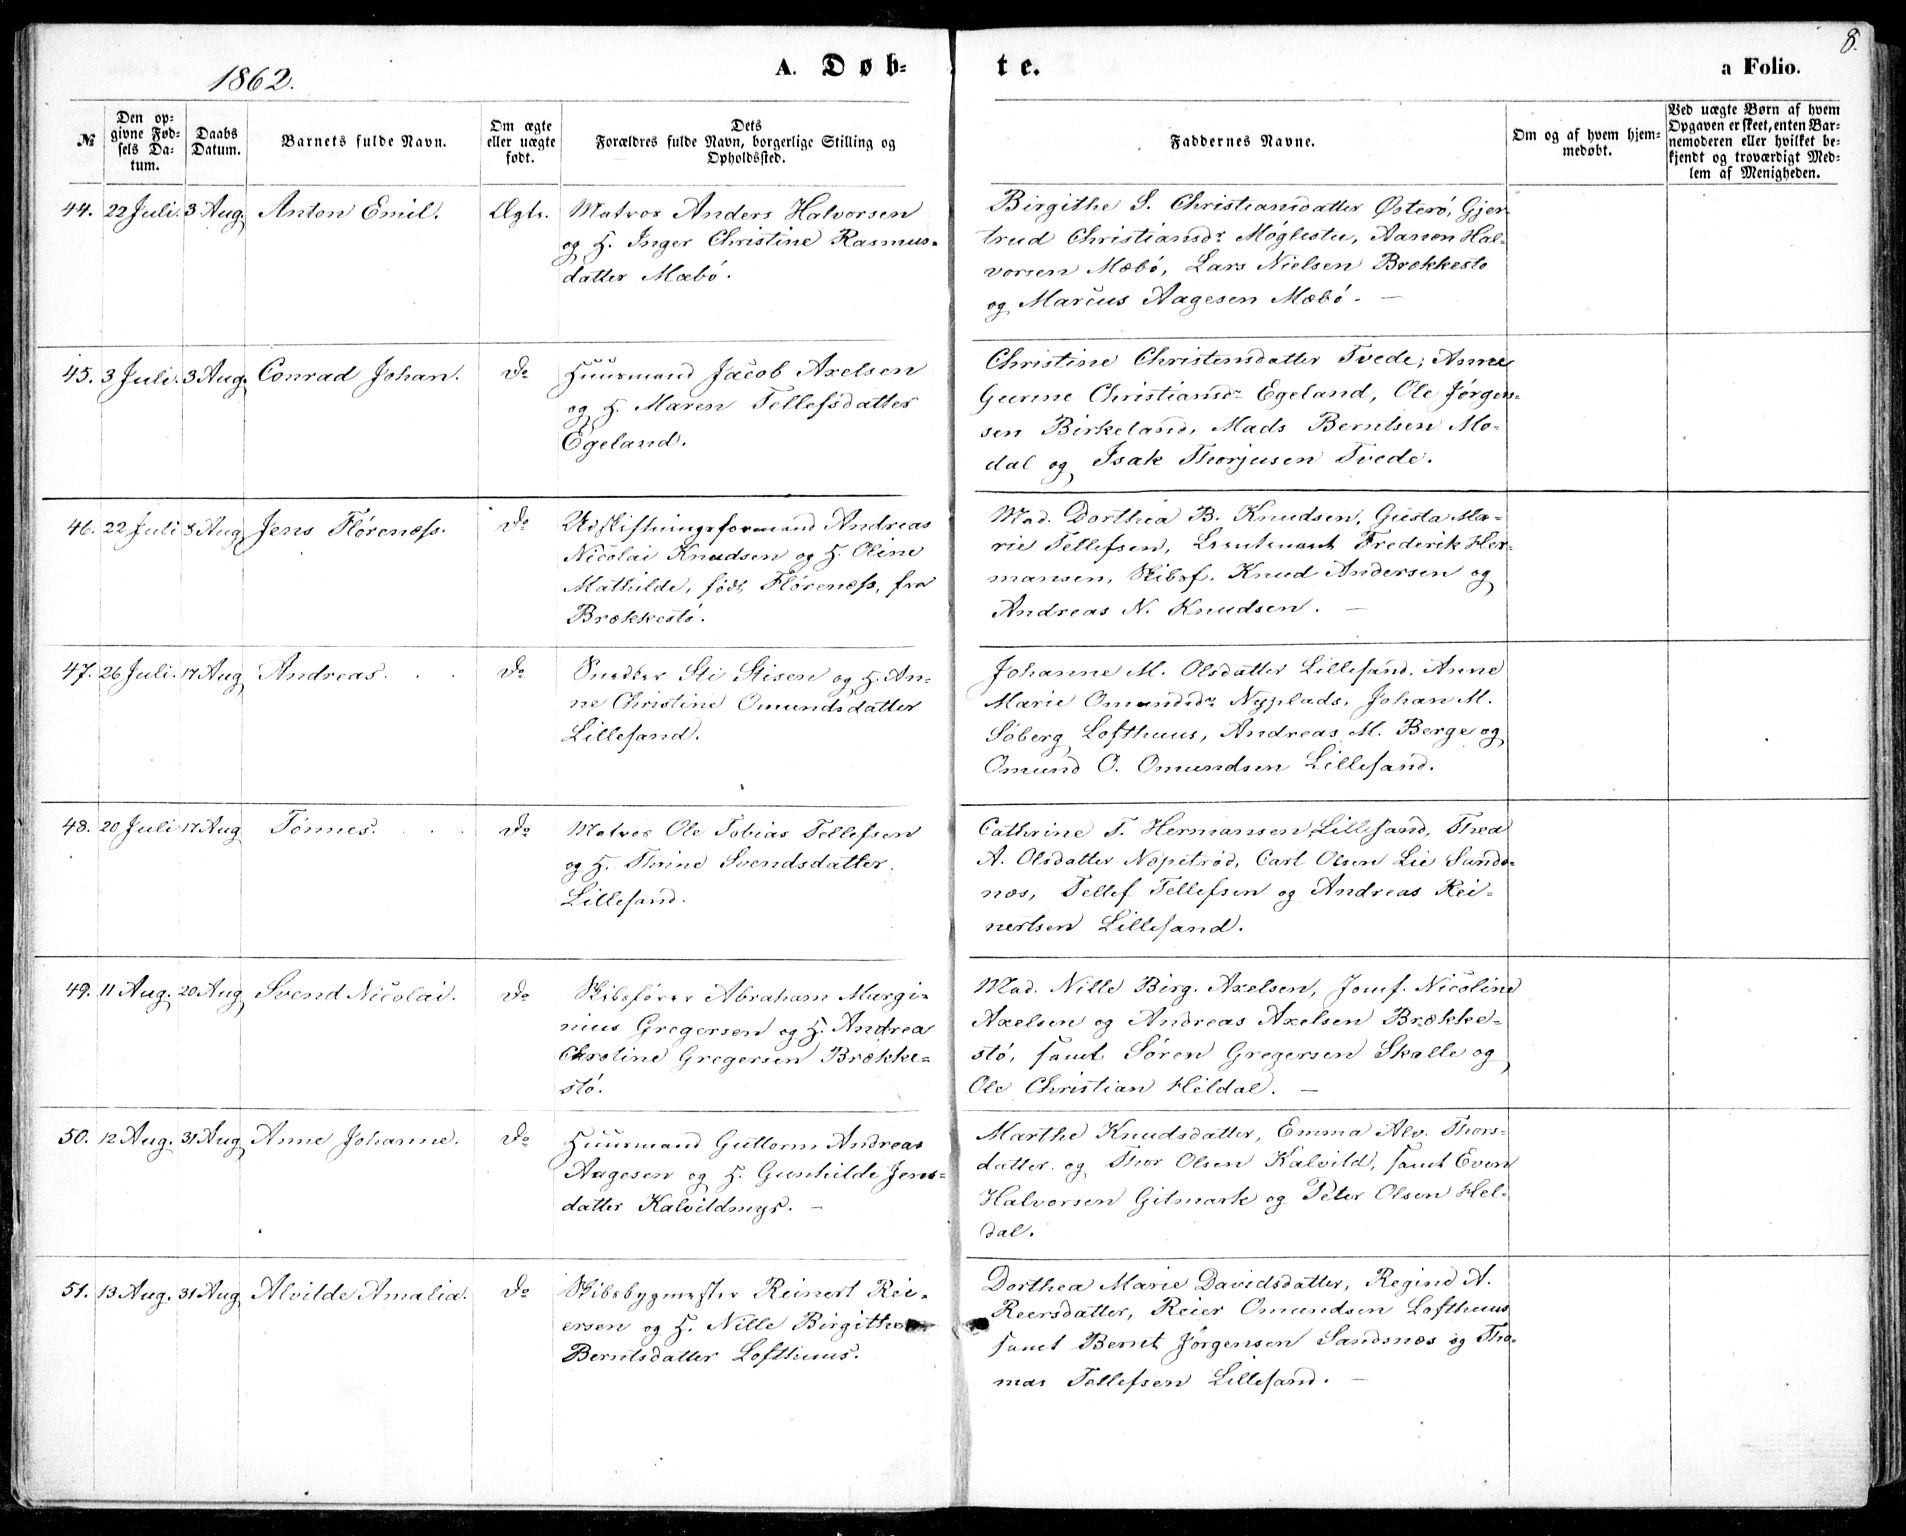 8.
1862.
A. Døb-
te.
a Folio.
№
Den op-
givne Fød-
sels Da-
tum.
Daabs
Datum.
Barnets fulde Navn.
Om ægte
eller uægte
født.
Dets
Forældres fulde Navn, borgerlige Stilling og
Opholdssted.
Faddernes Navne.
Om og af hvem hjem-
medøbt.
Ved uægte Børn af hvem
Opgaven er skeet, enten Bar-
nemoderen eller hvilket be-
kjendt og troværdigt Med-
lem af Menigheden.
44. 22 Juli. 3 Aug. Anton Emil. Ægte.
Matros Anders Halvorsen
og H. Inger Christine Rasmus-
datter Mæbø.
Birgithe S. Christiansdatter Østerø, Gjer
trud Christiansdr Møglestu, Aanon Hal-
vorsen Mæbø, Lars Nielsen Brækkestø
og Marcus Aagesen Mæbø. —
45. 3 Juli. 3 Aug. Conrad Johan. Do
Huusmand Jacob Axelsen
og H. Maren Tellefsdatter
Egeland.
Christine Christensdatter Tvede, Anne
Gurine Christiansdr Egeland, Ole Jørgen-
sen Birkeland, Mads Berntsen Mo-
dal og Isak Thorjusen Tvede.
46. 22 Juli 8 Aug Jens Flørenæss. Do
Udskiftningsformand Andreas
Nicolai Knudsen og H. Oline
Mathilde, født Flørenæss, fra
Brækkestø.
Mad. Dorthea B. Knudsen, Gusta Ma-
rie Tellefsen, Lieutenant Frederik Her-
mansen, Skibsf. Knud Andersen og
Andreas N. Knudsen. —
47. 26 Juli. 17 Aug Andreas. Do
Snedker Sti Stisen og H. An-
ne Christine Omundsdatter
Lillesand.
Johanne M. Olsdatter Lillesand. Anne
Marie Omundsdr Nyplads, Johan M.
Søberg Lofthuus, Andreas M. Berge og
Omund O. Omundsen Lillesand.
48. 20 Juli 17 Aug Tønnes. Do
Matros Ole Tobias Tellefsen
og H. Thrine Svendsdatter
Lillesand.
Cathrine T. Hermansen Lillesand, Thea
A. Olsdatter Nøpetrød, Carl Olsen Lie Sands-
næs, Tellef Tellefsen og Andreas Rei-
nertsen Lillesand.
49. 11 Aug. 20 Aug Svend Nicolai. Do
Skibsfører Abraham Murgi-
nius Gregersen og H. Andrea
Gregersen Brække-
stø.
Mad. Nille Birg. Axelsen, Jomf. Nicoline
Axelsen og Andreas Axelsen Brække-
stø, samt Søren Gregersen Skalle og
Ole Christian Heldal. —
50. 12 Aug. 31 Aug Anne Johanne. Do
Huusmand Guttorm Andreas
Aagesen og H. Gunhilde Jens-
datter Kalvildmyr. —
Marthe Knudsdatter, Emma Alv. Thors-
datter og Thor Olsen Kalvild, samt Even
Halvorsen Gitmark og Peter Olsen Hel-
dal.
51. 13 Aug. 31 Aug Alvilde Amalia. Do
Skibsbygmester Reinert Rei-
ersen og H. Nille Birgithe
Berntsdatter Lofthuus.
Dorthea Marie Davidsdatter, Regine A.
Reiersdatter, Reier Omundsen Lofthuus
samt Bernt Jørgensen Sandsnæs og Tho-
mas Tellefsen Lillesand. —